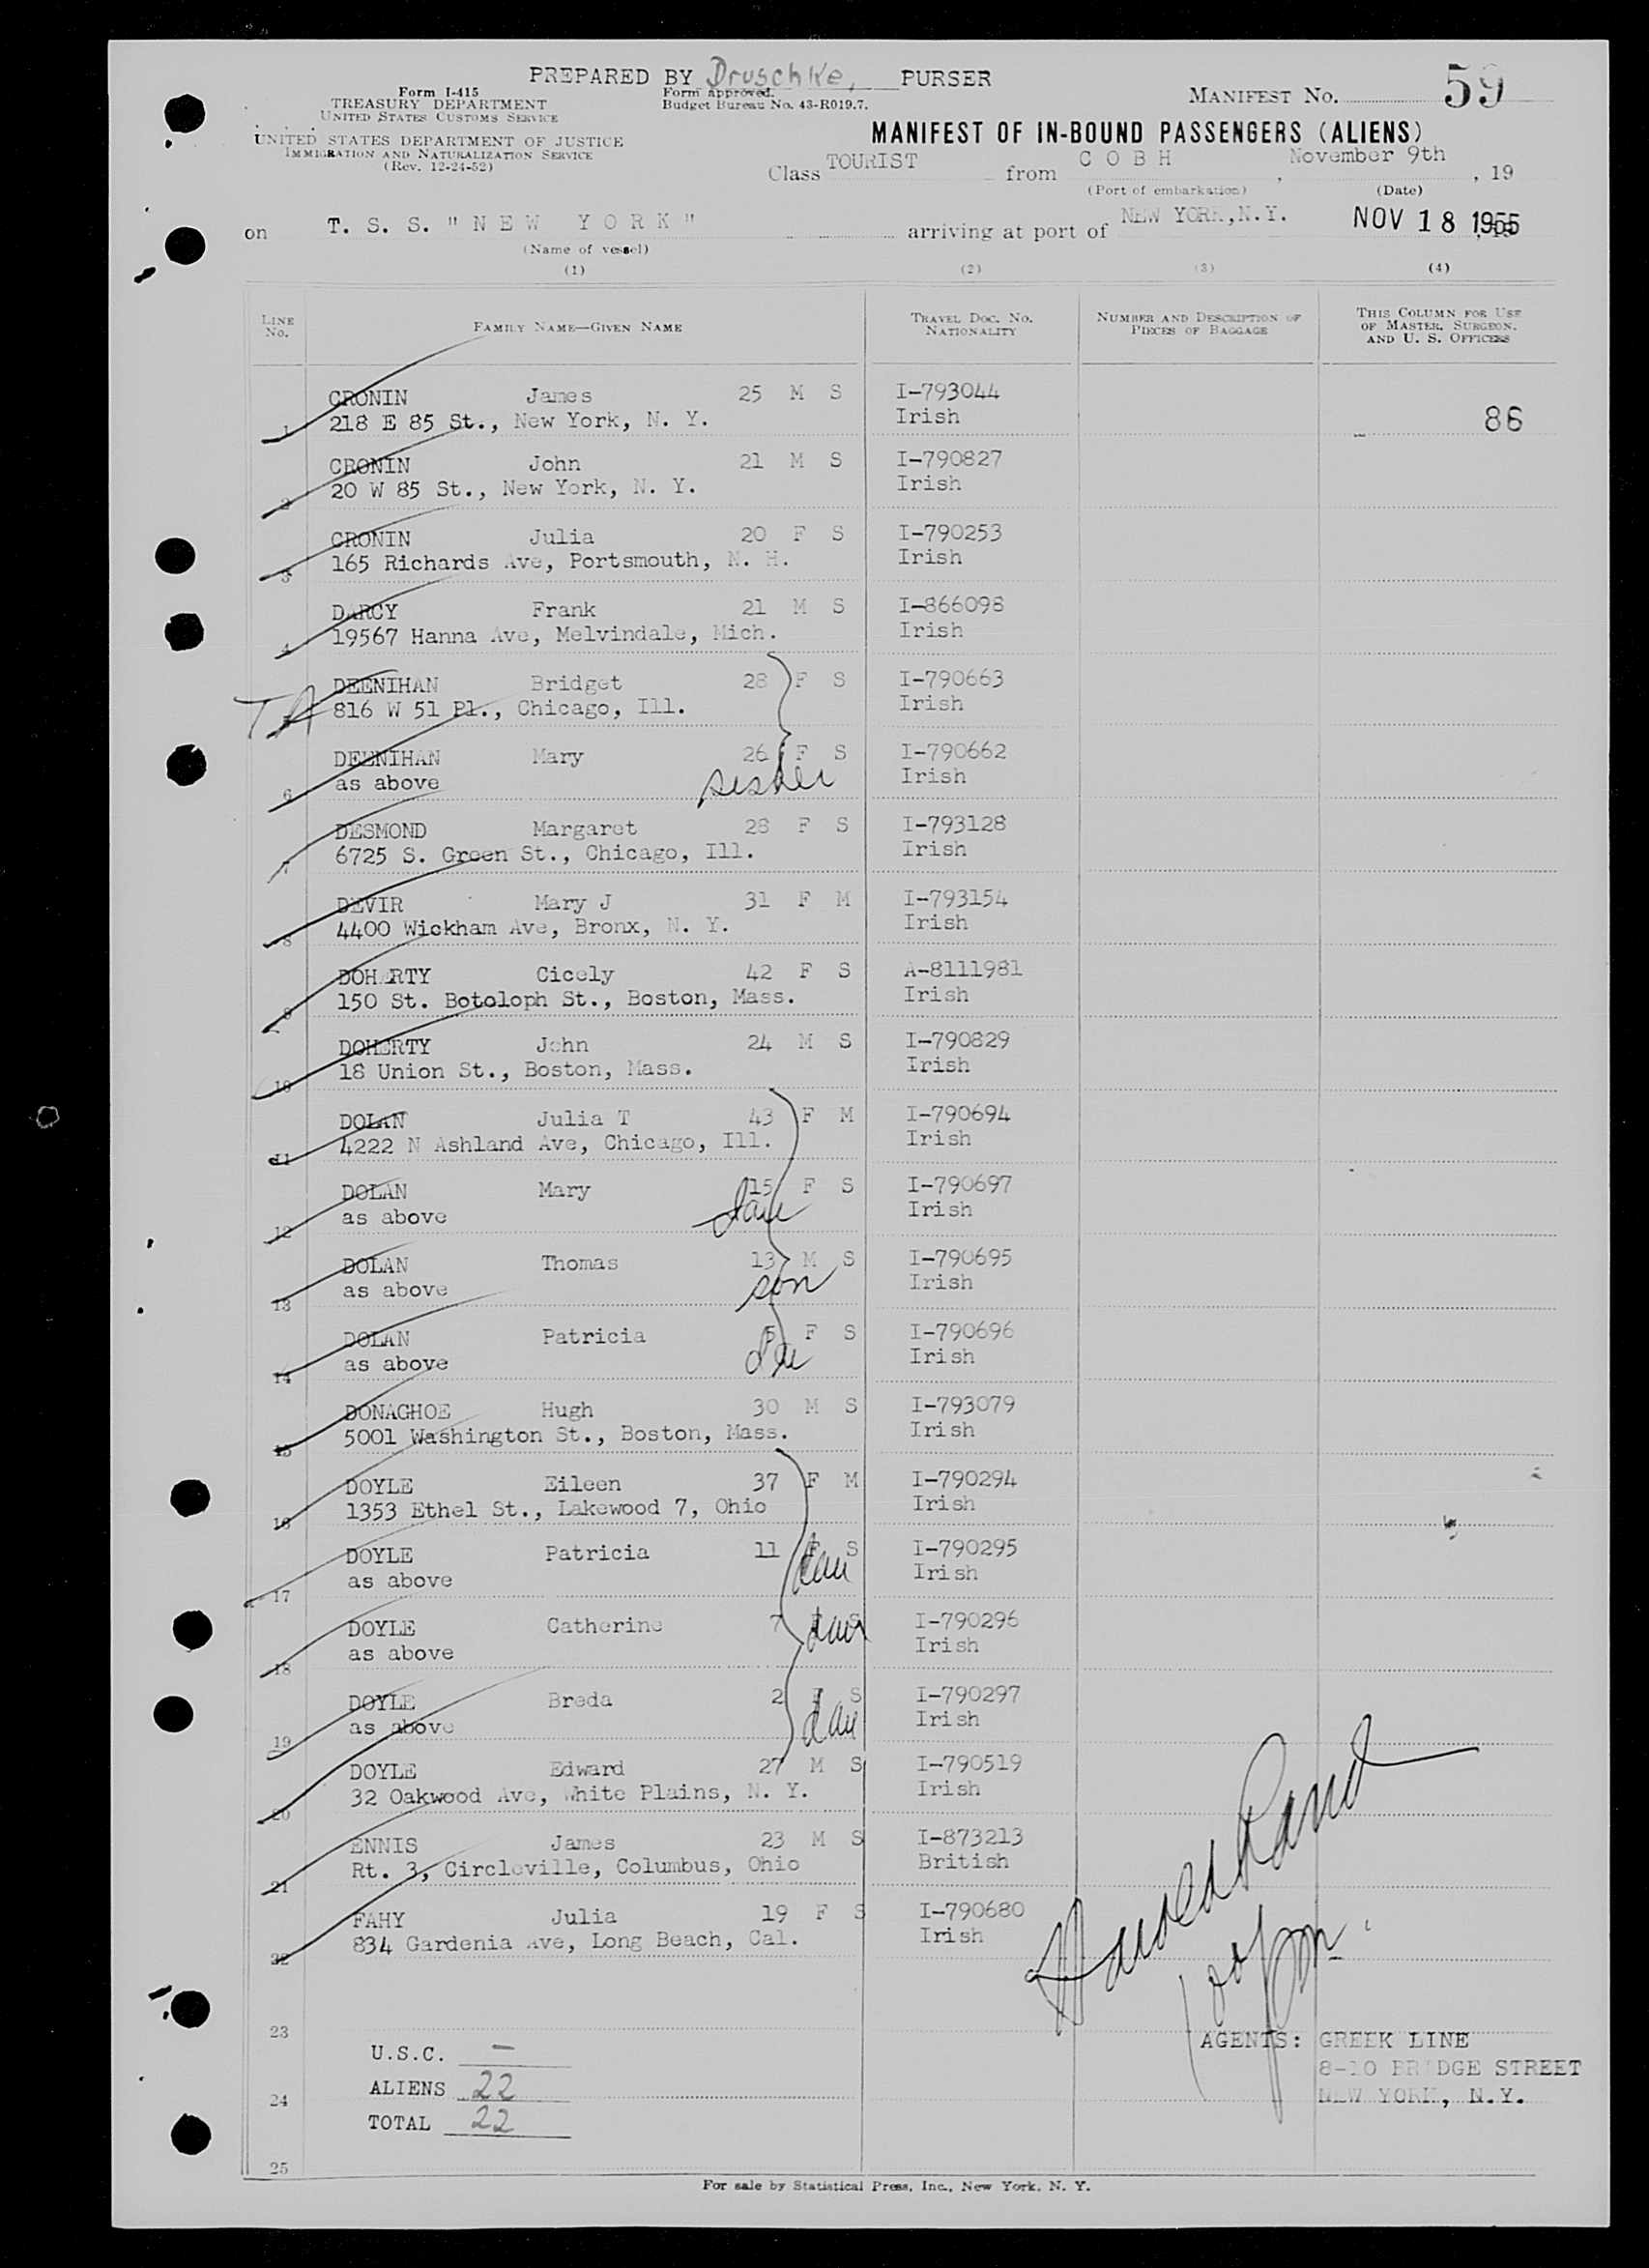 PREPARED BY Druschke, PURSER
Form I-415
TREASURY DEPARTMENT
UNITED STATES CUSTOMS SERVICE
Form approved.
Budget Bureau No. 43-R019.7.
MANIFEST No. 59
UNITED STATES DEPARTMENT OF JUSTICE
IMMIGRATION AND NATURALIZATION SERVICE
(Rev. 12-24-52)
MANIFEST OF IN-BOUND PASSENGERS (ALIENS)
Class TOURIST from C O B H, November 9th, 19
(Port of embarkation) (Date)
on T. S. S. "N E W Y O R K" arriving at port of NEW YORK, N.Y. NOV 18 1955
(Name of vessel)
(1) (2) (3) (4)
LINE No. FAMILY NAME—GIVEN NAME TRAVEL DOC. No. NATIONALITY NUMBER AND DESCRIPTION OF PIECES OF BAGGAGE THIS COLUMN FOR USE OF MASTER, SURGEON, AND U. S. OFFICERS
CRONIN James 25 M S I-793044
1 218 E 85 St., New York, N. Y. Irish 86
CRONIN John 21 M S I-790827
2 20 W 85 St., New York, N. Y. Irish
CRONIN Julia 20 F S I-790253
3 165 Richards Ave, Portsmouth, N. H. Irish
DARCY Frank 21 M S I-866098
4 19567 Hanna Ave, Melvindale, Mich. Irish
DEENIHAN Bridget 28 F S I-790663
TA 5 816 W 51 Pl., Chicago, Ill. Irish
DEENIHAN Mary 26 F S I-790662
6 as above sister Irish
DESMOND Margaret 28 F S I-793128
7 6725 S. Green St., Chicago, Ill. Irish
DEVIR Mary J 31 F M I-793154
8 4400 Wickham Ave, Bronx, N. Y. Irish
DOHERTY Cicely 42 F S A-8111981
9 150 St. Botoloph St., Boston, Mass. Irish
DOHERTY John 24 M S I-790829
10 18 Union St., Boston, Mass. Irish
DOLAN Julia T 43 F M I-790694
11 4222 N Ashland Ave, Chicago, Ill. Irish
DOLAN Mary 15 F S I-790697
12 as above dau Irish
DOLAN Thomas 13 M S I-790695
13 as above son Irish
DOLAN Patricia 5 F S I-790696
14 as above dau Irish
DONAGHOE Hugh 30 M S I-793079
15 5001 Washington St., Boston, Mass. Irish
DOYLE Eileen 37 F M I-790294
16 1353 Ethel St., Lakewood 7, Ohio Irish
DOYLE Patricia 11 F S I-790295
17 as above dau Irish
DOYLE Catherine 7 F S I-790296
18 as above dau Irish
DOYLE Breda 2 F S I-790297
19 as above dau Irish
DOYLE Edward 27 M S I-790519
20 32 Oakwood Ave, White Plains, N. Y. Irish
ENNIS James 23 M S I-873213
21 Rt. 3, Circleville, Columbus, Ohio British
FAHY Julia 19 F S I-790680
22 834 Gardenia Ave, Long Beach, Cal. Irish
Harold Rand
23
U.S.C. —
AGENTS: GREEK LINE
8-10 BRIDGE STREET
NEW YORK, N.Y.
24 ALIENS 22
TOTAL 22
25
For sale by Statistical Press, Inc., New York, N. Y.